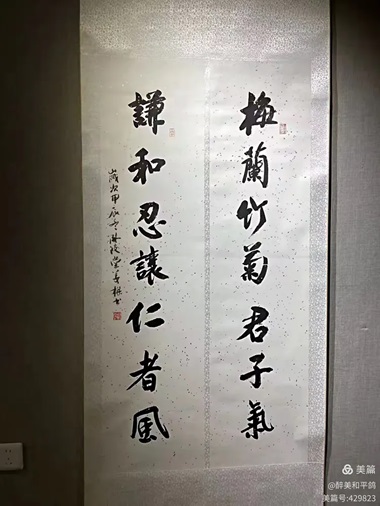 梅蘭竹菊君子氣
謙和忍讓仁者風
歲次甲辰
美篇
@醉美和平鸽
美篇号:429823